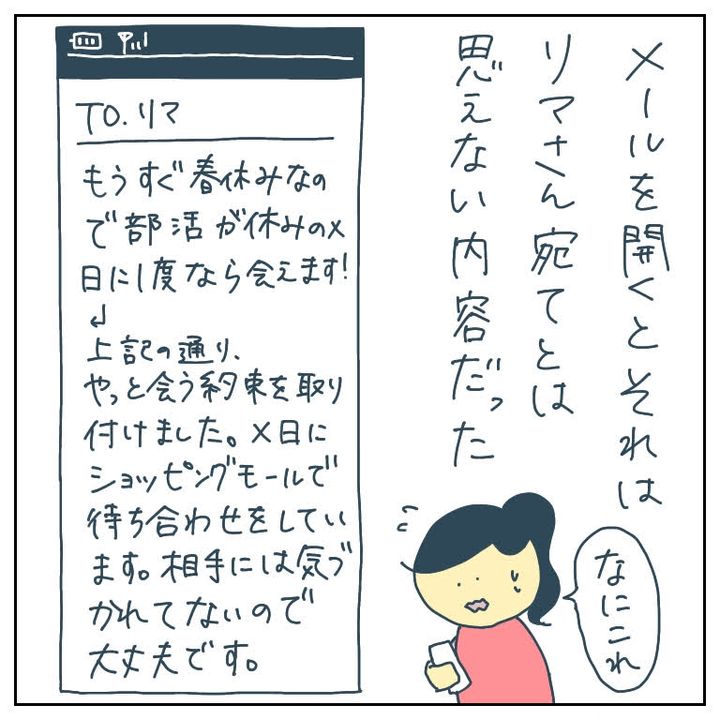 メールを開くとそれは
リマさん宛てとは
思えない内容だった
TO.リマ
もうすぐ春休みなの
で部活が休みのX
日に1度なら会えます!
↲
上記の通り、
やっと会う約束を取り
付けました。X日に
ショッピングモールで
待ち合わせをしてい
ます。相手には気づ
かれてないので
大丈夫です。
なにこれ